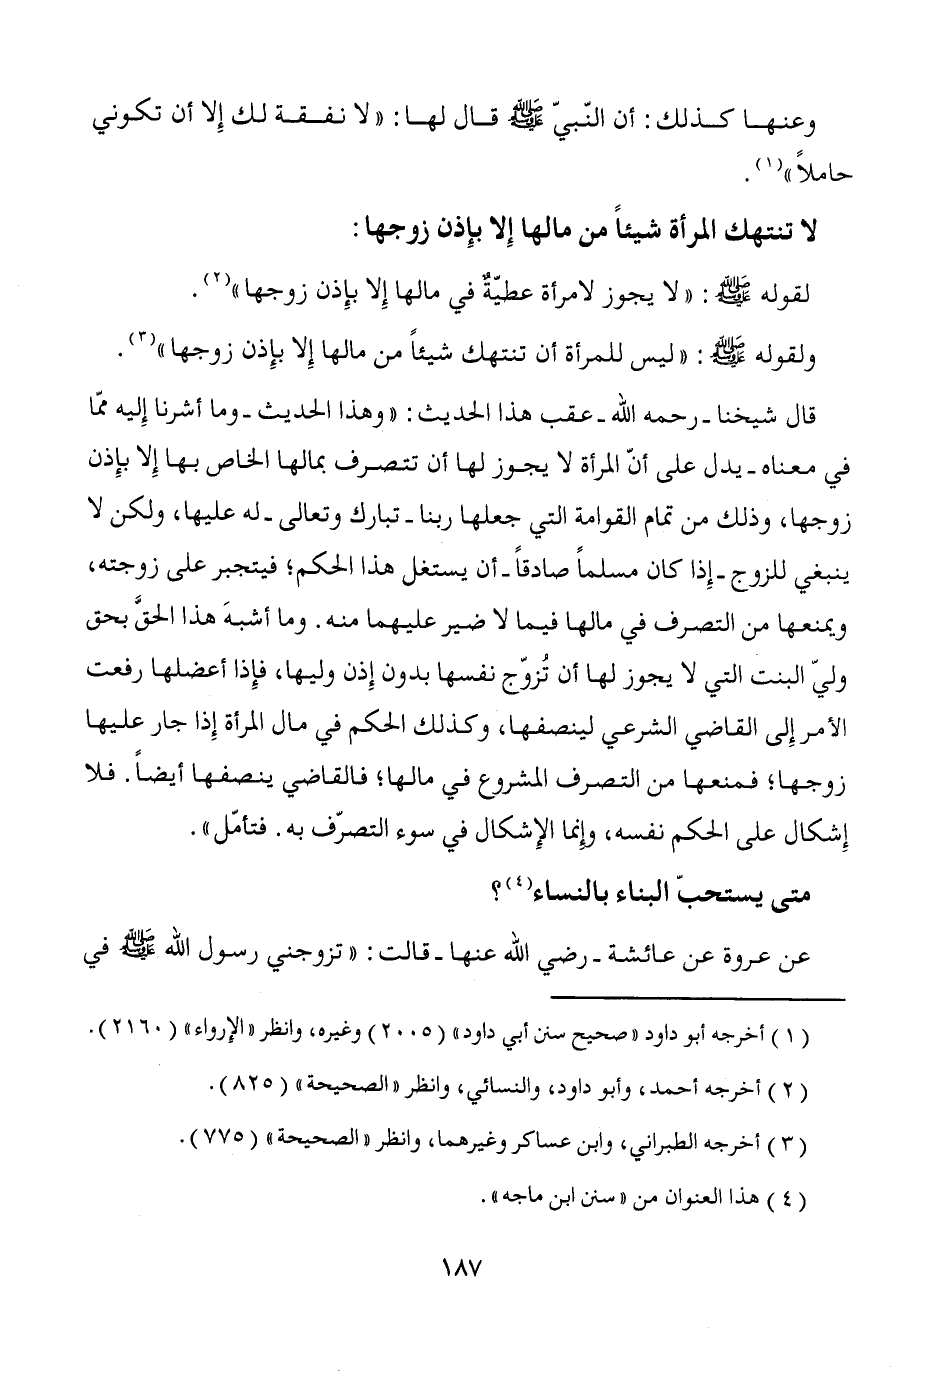 وعنها كذلك: أن النّبيّ ﷺ قال لها: «لا نفقة لك إلا أن تكوني
حاملاً»(١).
لا تنتهك المرأة شيئاً من مالها إلا بإِذن زوجها:
لقوله ﷺ: «لا يجوز لامرأة عطيّةٌ في مالها إلا بإِذن زوجها»(٢).
ولقوله ﷺ: «ليس للمرأة أن تنتهك شيئاً من مالها إلا بإِذن زوجها»(٣).
قال شيخنا ـ رحمه الله ـ عقب هذا الحديث: «وهذا الحديث ـ وما أشرنا إليه ممّا
في معناه ـ يدل على أنّ المرأة لا يجوز لها أن تتصرف بمالها الخاص بها إلا بإِذن
زوجها، وذلك من تمام القوامة التي جعلها ربنا ـ تبارك وتعالى ـ له عليها، ولكن لا
ينبغي للزوج ـ إذا كان مسلماً صادقاً ـ أن يستغل هذا الحكم؛ فيتجبر على زوجته،
ويمنعها من التصرف في مالها فيما لا ضير عليهما منه. وما أشبهَ هذا الحقَّ بحق
وليّ البنت التي لا يجوز لها أن تُزوّج نفسها بدون إذن وليها، فإذا أعضلها رفعت
الأمر إلى القاضي الشرعي لينصفها، وكذلك الحكم في مال المرأة إذا جار عليها
زوجها؛ فمنعها من التصرف المشروع في مالها؛ فالقاضي ينصفها أيضاً. فلا
إشكال على الحكم نفسه، وإنما الإشكال في سوء التصرّف به. فتأمّل».
متى يستحبّ البناء بالنساء(٤)؟
عن عروة عن عائشة ـ رضي الله عنها ـ قالت: «تزوجني رسول الله ﷺ في
(١) أخرجه أبو داود «صحيح سنن أبي داود» (٢٠٠٥) وغيره، وانظر «الإرواء» (٢١٦٠).
(٢) أخرجه أحمد، وأبو داود، والنسائي، وانظر «الصحيحة» (٨٢٥).
(٣) أخرجه الطبراني، وابن عساكر وغيرهما، وانظر «الصحيحة» (٧٧٥).
(٤) هذا العنوان من «سنن ابن ماجه».
١٨٧